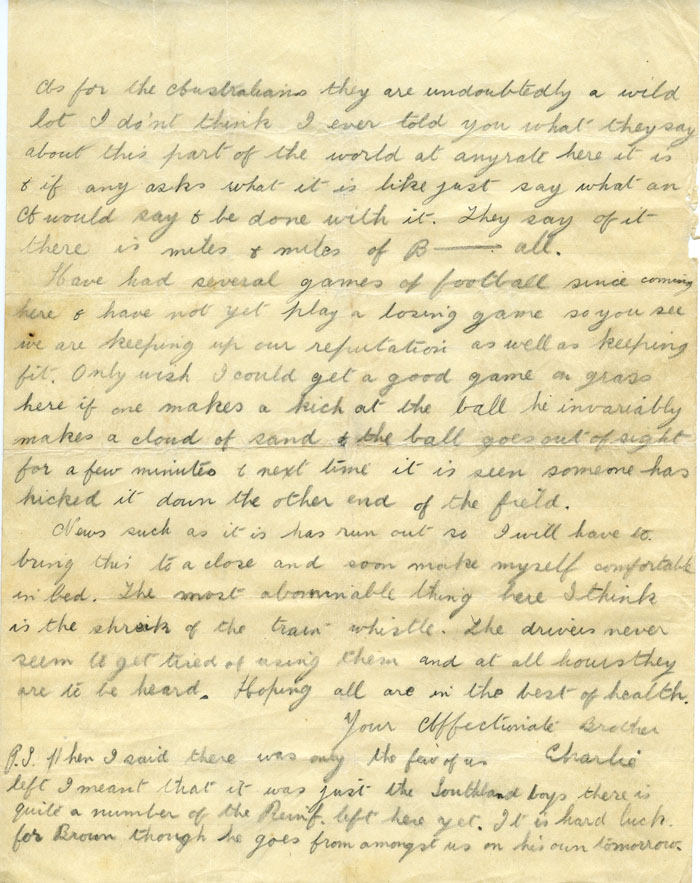 As for the Australians they are undoubtedly a wild
lot I do'nt think I ever told you what they say
about this part of the world at anyrate here it is
& if any asks what it is like just say what an
A would say & be done with it. They say of it
there is miles & miles of B—— all.
Have had several games of football since coming
here & have not yet play a losing game so you see
we are keeping up our reputation as well as keeping
fit. Only wish I could get a good game on grass
here if one makes a kick at the ball he invariably
makes a cloud of sand & the ball goes out of sight
for a few minutes & next time it is seen someone has
kicked it down the other end of the field.
News such as it is has run out so I will have to
bring this to a close and soon make myself comfortable
in bed. The most abominable thing here I think
is the shreik of the train whistle. The drivers never
seem to get tired of using them and at all hours they
are to be heard. Hoping all are in the best of health.
Your Affectionate Brother
Charlie
P.S. When I said there was only the few of us
left I meant that it was just the Southland boys there is
quite a number of the Reinf. left here yet. It is hard luck
for Brown though he goes from amongst us on his own tomorrow.